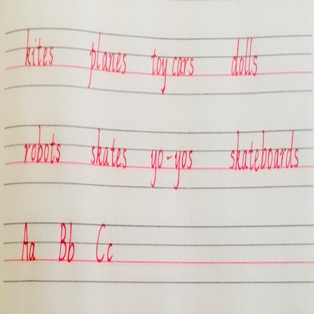 kites planes toy cars dolls
robots skates yo-yos skateboards
Aa Bb Cc